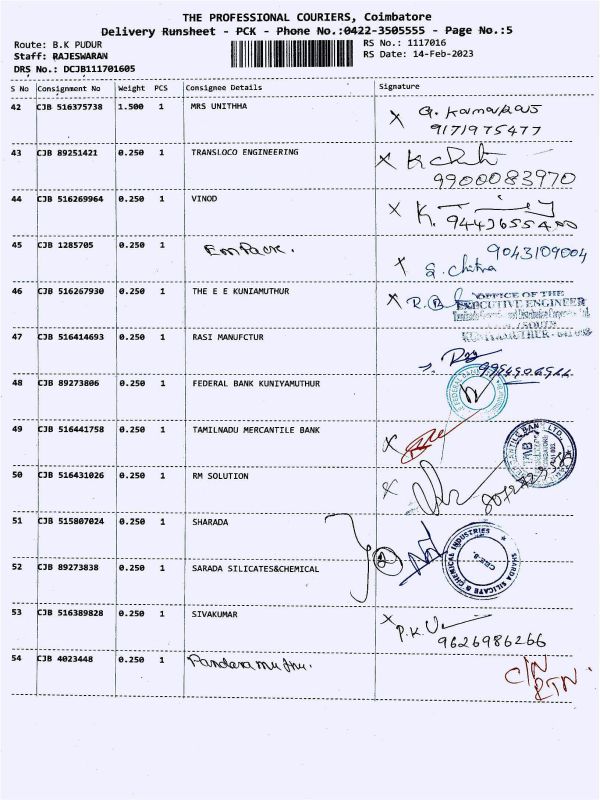 THE PROFESSIONAL COURIERS, Coimbatore
Delivery Runsheet - PCK - Phone No.:0422-3505555 - Page No.:5
Route: B.K PUDUR
RS No.: 1117016
Staff: RAJESWARAN
RS Date: 14-Feb-2023
DRS No.: DCJB111701605
S No Consignment No Weight PCS Consignee Details Signature
42 CJB 516375738 1.500 1 MRS UNITHHA
9171975477
43 CJB 89251421 0.250 1 TRANSLOCO ENGINEERING
9900083970
44 CJB 516269964 0.250 1 VINOD
45 CJB 1285705 0.250 1 9043109004
S. Chitra
46 CJB 516267930 0.250 1 THE E E KUNIAMUTHUR
OFFICE OF THE
EXECUTIVE ENGINEER
47 CJB 516414693 0.250 1 RASI MANUFCTUR
48 CJB 89273806 0.250 1 FEDERAL BANK KUNIYAMUTHUR
49 CJB 516441758 0.250 1 TAMILNADU MERCANTILE BANK
50 CJB 516431026 0.250 1 RM SOLUTION
51 CJB 515807024 0.250 1 SHARADA
2
SHARDA SILICATE & CHEMICAL INDUSTRIES
CBE-8.
52 CJB 89273838 0.250 1 SARADA SILICATES&CHEMICAL
53 CJB 516389828 0.250 1 SIVAKUMAR
9626986266
54 CJB 4023448 0.250 1 Pandaramuthu.
C/N
RTN